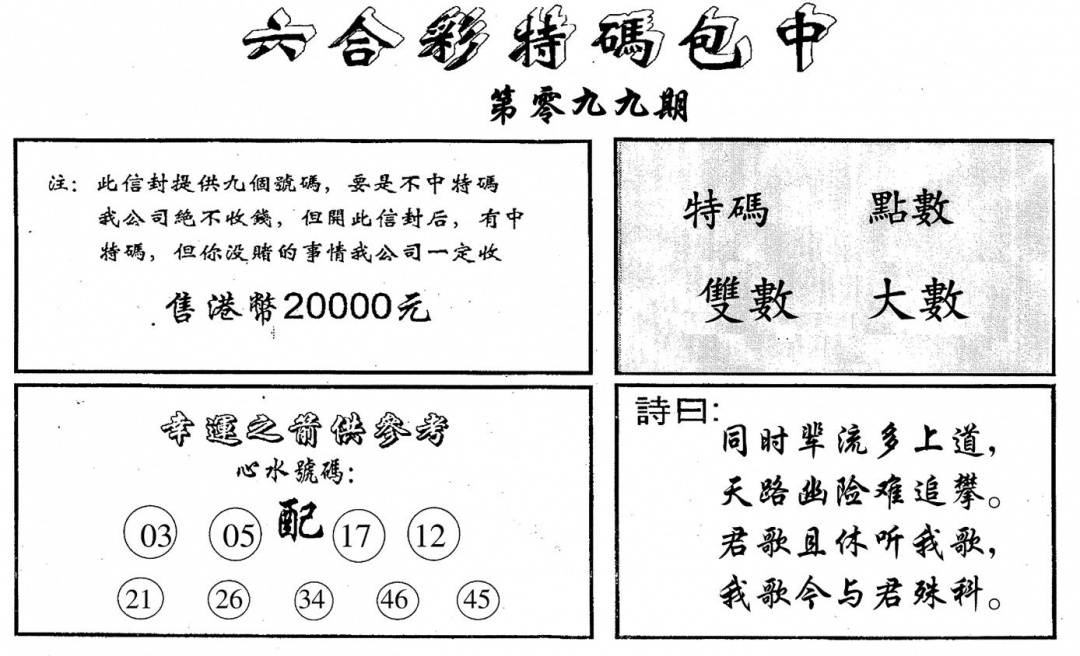 六合彩特碼包中
第零九九期
注：此信封提供九個號碼，要是不中特碼
我公司絕不收錢，但開此信封后，有中
特碼，但你没賭的事情我公司一定收
售港幣20000元
特碼 點數
雙數 大數
幸運之箭供參考
心水號碼：
03 05 配 17 12
21 26 34 46 45
詩曰：
同时辈流多上道，
天路幽险难追攀。
君歌且休听我歌，
我歌今与君殊科。